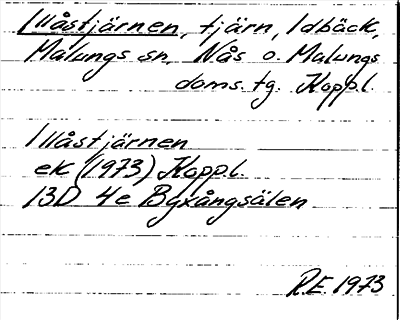 Illåstjärnen, tjärn, Idbäck,
Malungs sn, Nås o. Malungs
doms. tg. Koppl.
Illåstjärnen
ek (1973) Koppl.
13D 4e Byxångsälen
R.E. 1973